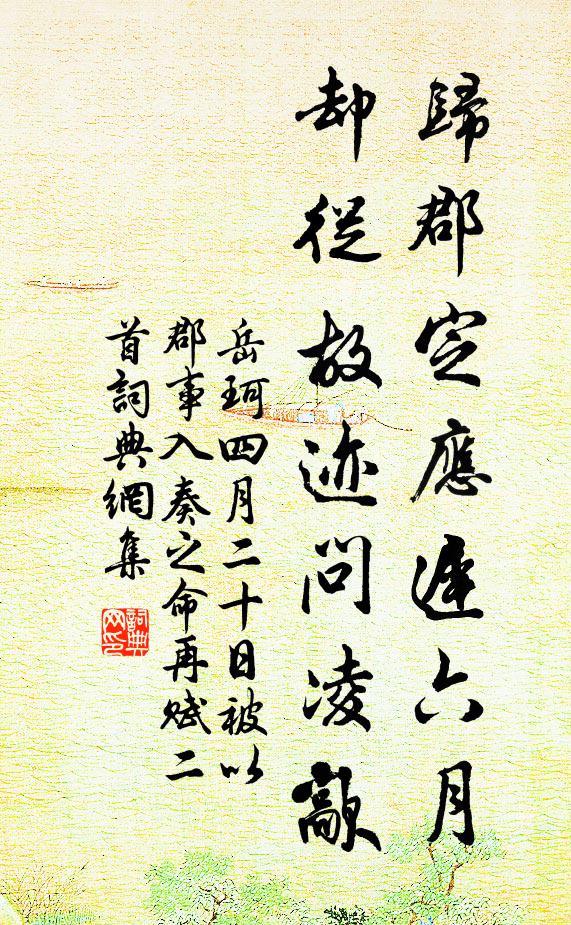 歸郡定應遲六月
却從故迹問凌歊
岳珂四月二十日被以
郡事入奏之命再賦二
首詞典網集
詞典
网印